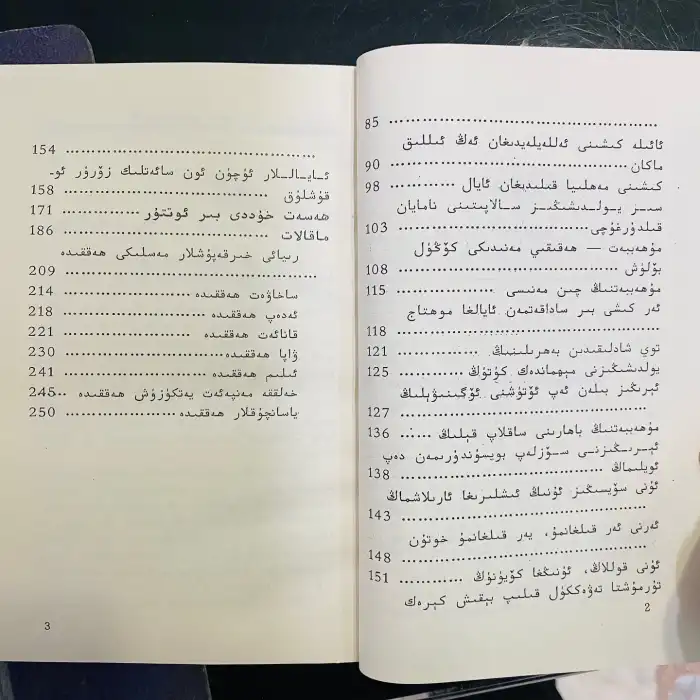 85 ........................................
ئائىلە كىشىنى ئەللەيلەيدىغان ئەڭ ئىللىق
ماكان ........................................ 90
كىشىنى مەھلىيا قىلىدىغان ئايال ............ 98
سىز يولدىشىڭىز سالاپىتىنى نامايان
قىلدۇرغۇچى ........................... 103
مۇھەببەت — ھەقىقىي مەنىدىكى كۆڭۈل
بۆلۈش .............................. 108
مۇھەببەتنىڭ چىن مەنىسى ................ 115
ئەر كىشى بىر ساداقەتمەن ئايالغا موھتاج
........................................ 118
توي شادلىقىدىن بەھرىلىنىڭ ............ 121
يولدىشىڭىزنى مېھماندەك كۈتۈڭ ...... 125
ئېرىڭىز بىلەن ئەپ ئۆتۈشنى ئۆگىنىۋېلىڭ
........................................ 127
مۇھەببەتنىڭ باھارىنى ساقلاپ قېلىڭ ...... 136
ئېرىڭىزنى سۆزلەپ بويسۇندۇرىمەن دەپ
ئويلىماڭ .............................. 138
ئۇنى سۆيسىڭىز ئۇنىڭ ئىشلىرىغا ئارىلاشماڭ
........................................ 143
ئەرنى ئەر قىلغانمۇ، يەر قىلغانمۇ خوتۇن
........................................ 148
ئۇنى قوللاڭ، ئۇنىڭغا كۆيۈنۈڭ ............ 151
تۇرمۇشتا تەۋەككۈل قىلىپ بېقىش كېرەك
2
........................................ 154
ئاياللار ئۈچۈن ئون سائەتلىك زۆرۈر ئو-
قۇشلۇق .............................. 158
ھەسەت خۇددى بىر ئوتتۇر ............ 171
ماقالات .............................. 186
رىيائى خىرقەپۇشلار مەسلىكى ھەققىدە
........................................ 209
ساخاۋەت ھەققىدە .................. 214
ئەدەپ ھەققىدە ..................... 218
قانائەت ھەققىدە ..................... 221
ۋاپا ھەققىدە ........................ 230
ئىلىم ھەققىدە ........................ 241
خەلققە مەنپەئەت يەتكۈزۈش ھەققىدە ...245
ياسانچۇقلار ھەققىدە .................. 250
3